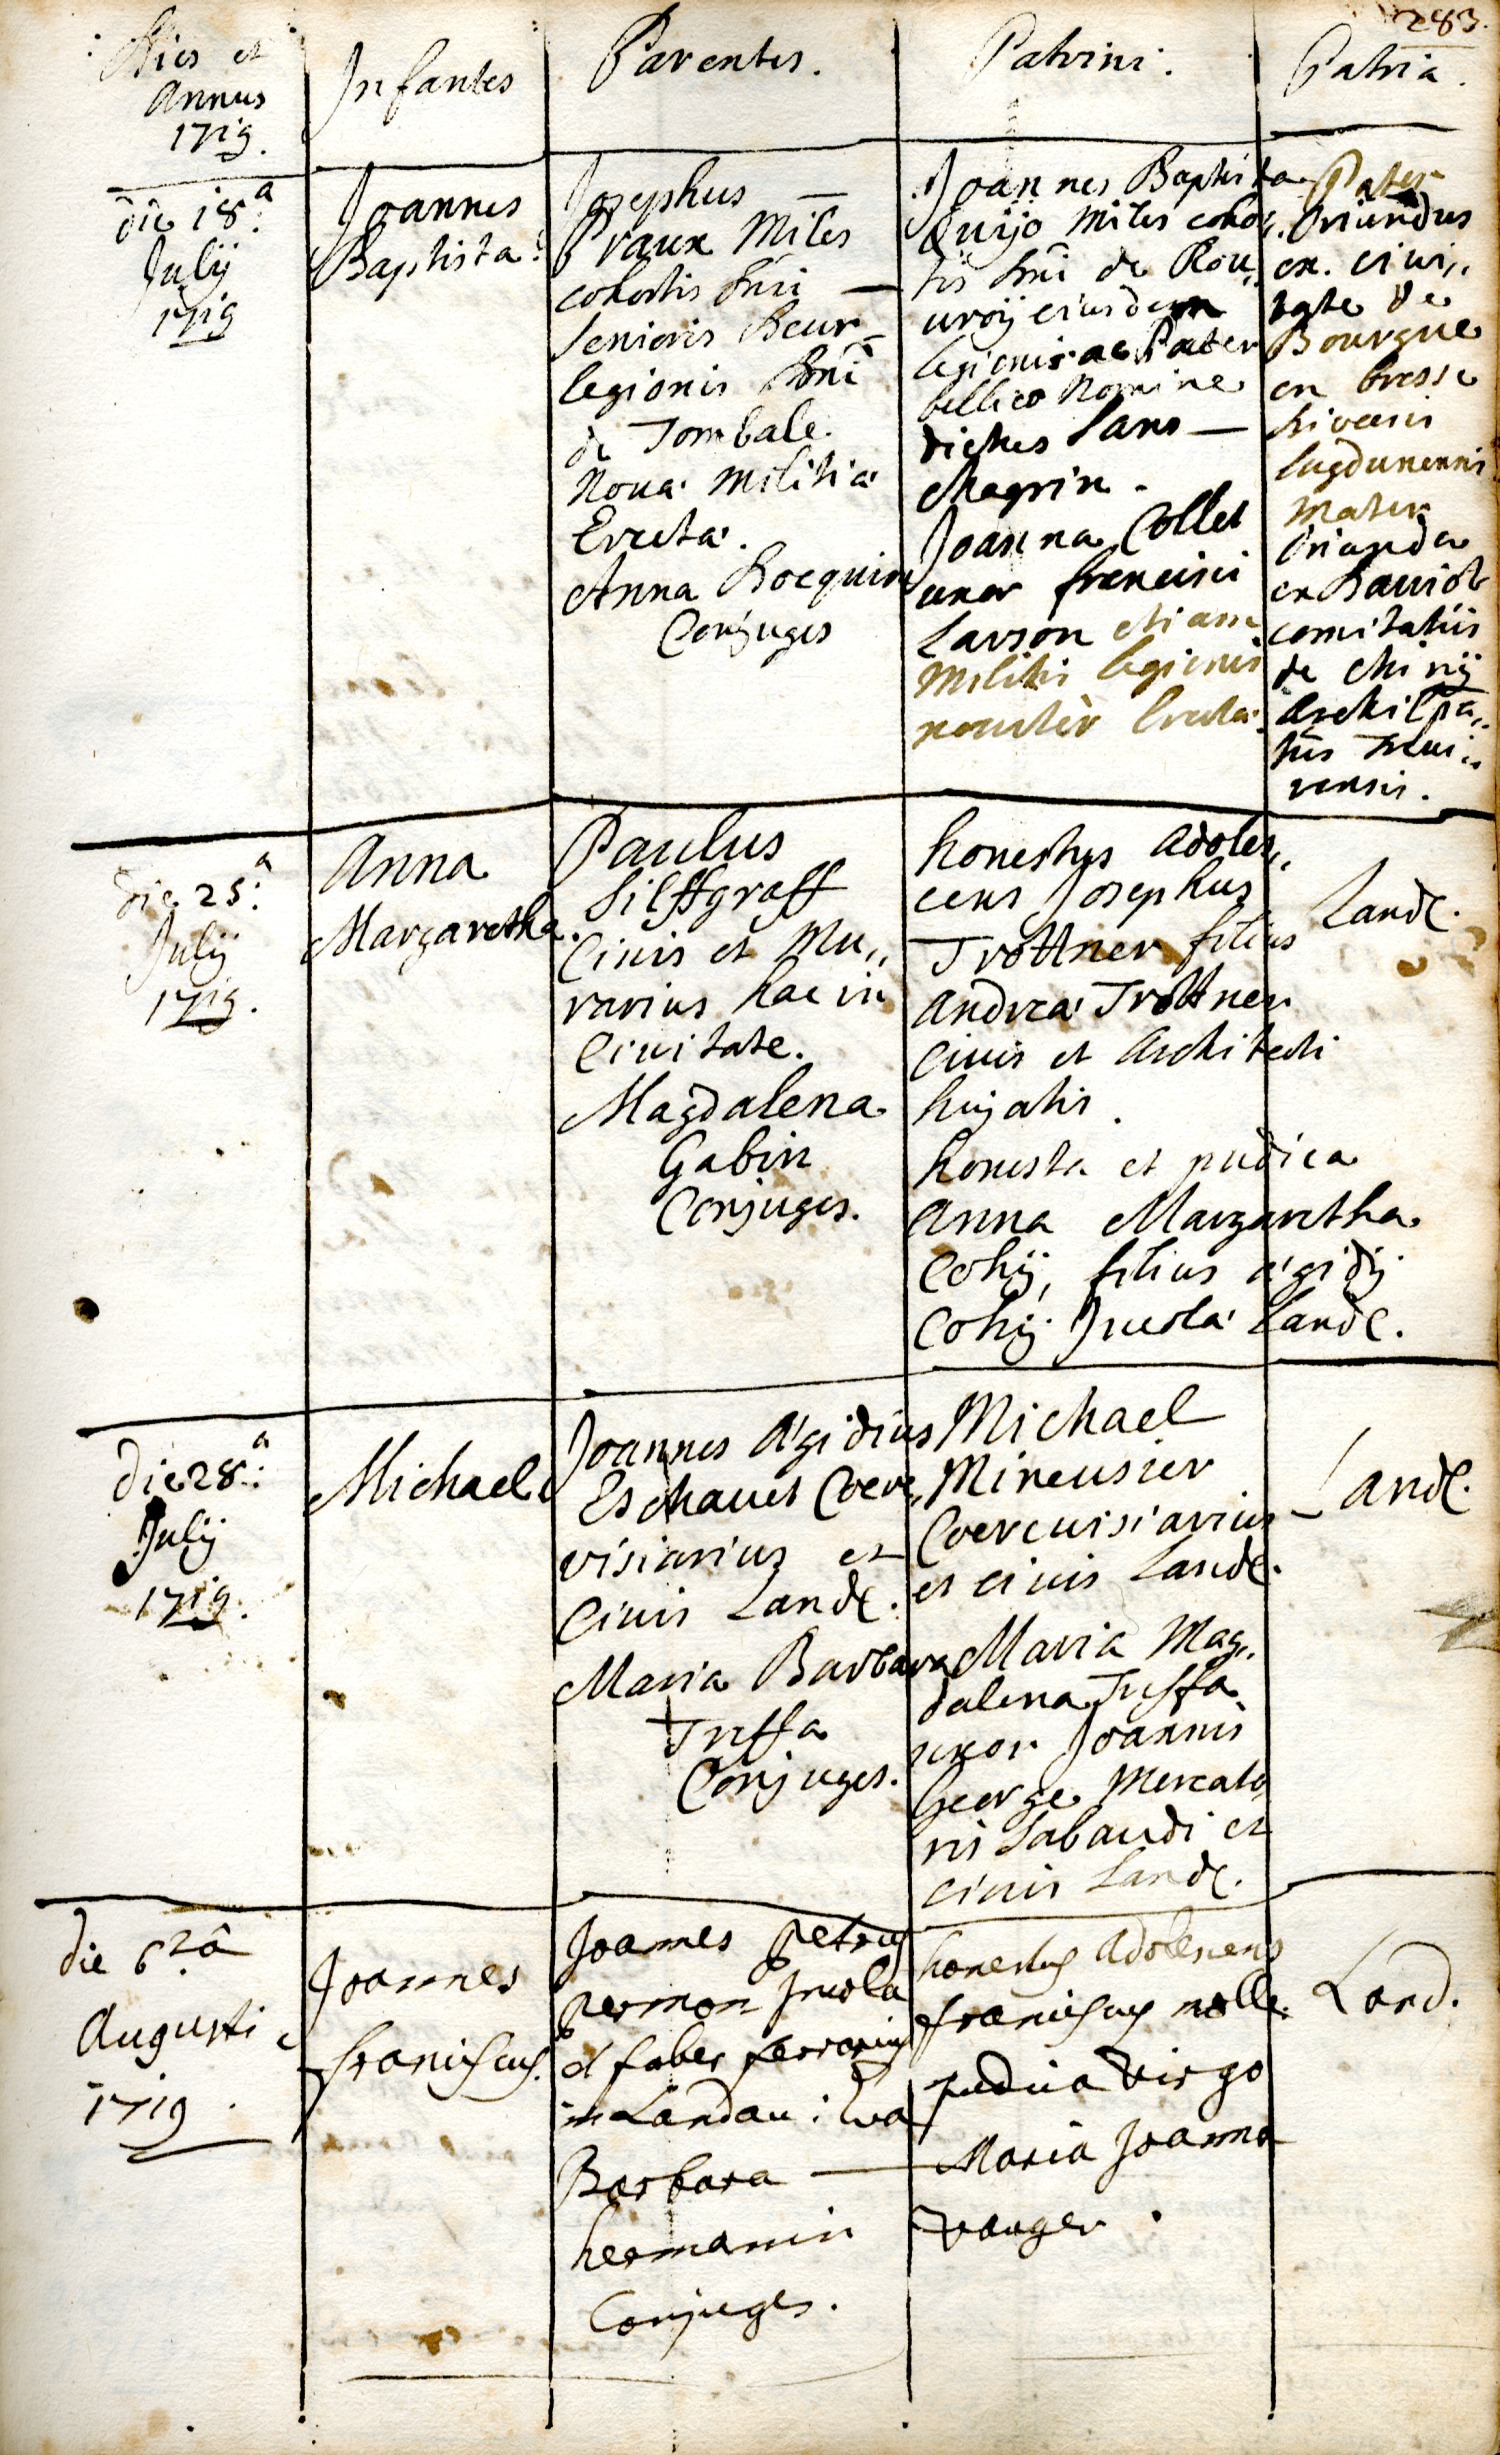 283.
Dies et
Annus
1719.
Infantes
Parentes.
Patrini.
Patria.
die 18.a
July
1719
Joannes
Baptista.
Josephus —
Praux Miles
cohortis Dni —
Senioris
legionis Dni
de Tombale.
Noua militia
Erecta.
Anna Hocquin
Conjuges
Joannes Baptista
Quijo Miles cohor,,
tis Dni de Rou,,
uroÿ eiusdem
legionis ac Pater
bellico Nomine
dictus Sans —
Chagrin.
Joanna Collet
uxor francisci
Larson etiam
Militis legionis
nouiter Erecta.
Pater
Oriundus
ex. ciui,,
tate de
Bourgue
en bresse
Lugdunensis
Mater
Oriunda
ex
comitatus
de Chinÿ
Treui,,
rensis.
die 25.a
July
1719.
Anna
Margaretha.
Paulus
Silffgraff
Ciuis et Mu,,
rarius hac in
Ciuitate.
Magdalena
Gabin
Conjuges.
honestus adoles,,
cens Josephus
Trottner filius
Andreæ Trottner
Ciuis et Architecti
hujatis.
honesta et pudica
Anna Margaretha
Cohÿ, filius ægidÿ
Cohÿ Incola Landẽ.
Landẽ.
die 28.a
July
1719.
Michael
Joannes Ægidius
Eschauet Coere,,
visiarius et
Ciuis Landẽ.
Maria Barbara
Treffa
Conjuges.
Michael
Mineusier
Coereuisiarius
et ciuis Landẽ.
Maria Mag,,
dalena Treffa
uxor Joannis
George Mercato,,
ris Sabaudi et
ciuis Landẽ.
Landẽ.
die 6ta
Augusti
1719.
Joannes
franciscus.
Joannes petrus
permon Incola
et faber ferrarius
in Landau: Eva
Barbara —
hermannin
Conjuges.
honestus Adolescens
franciscus nolle.
pudica Virgo
Maria Joanna
Wanger.
Land.